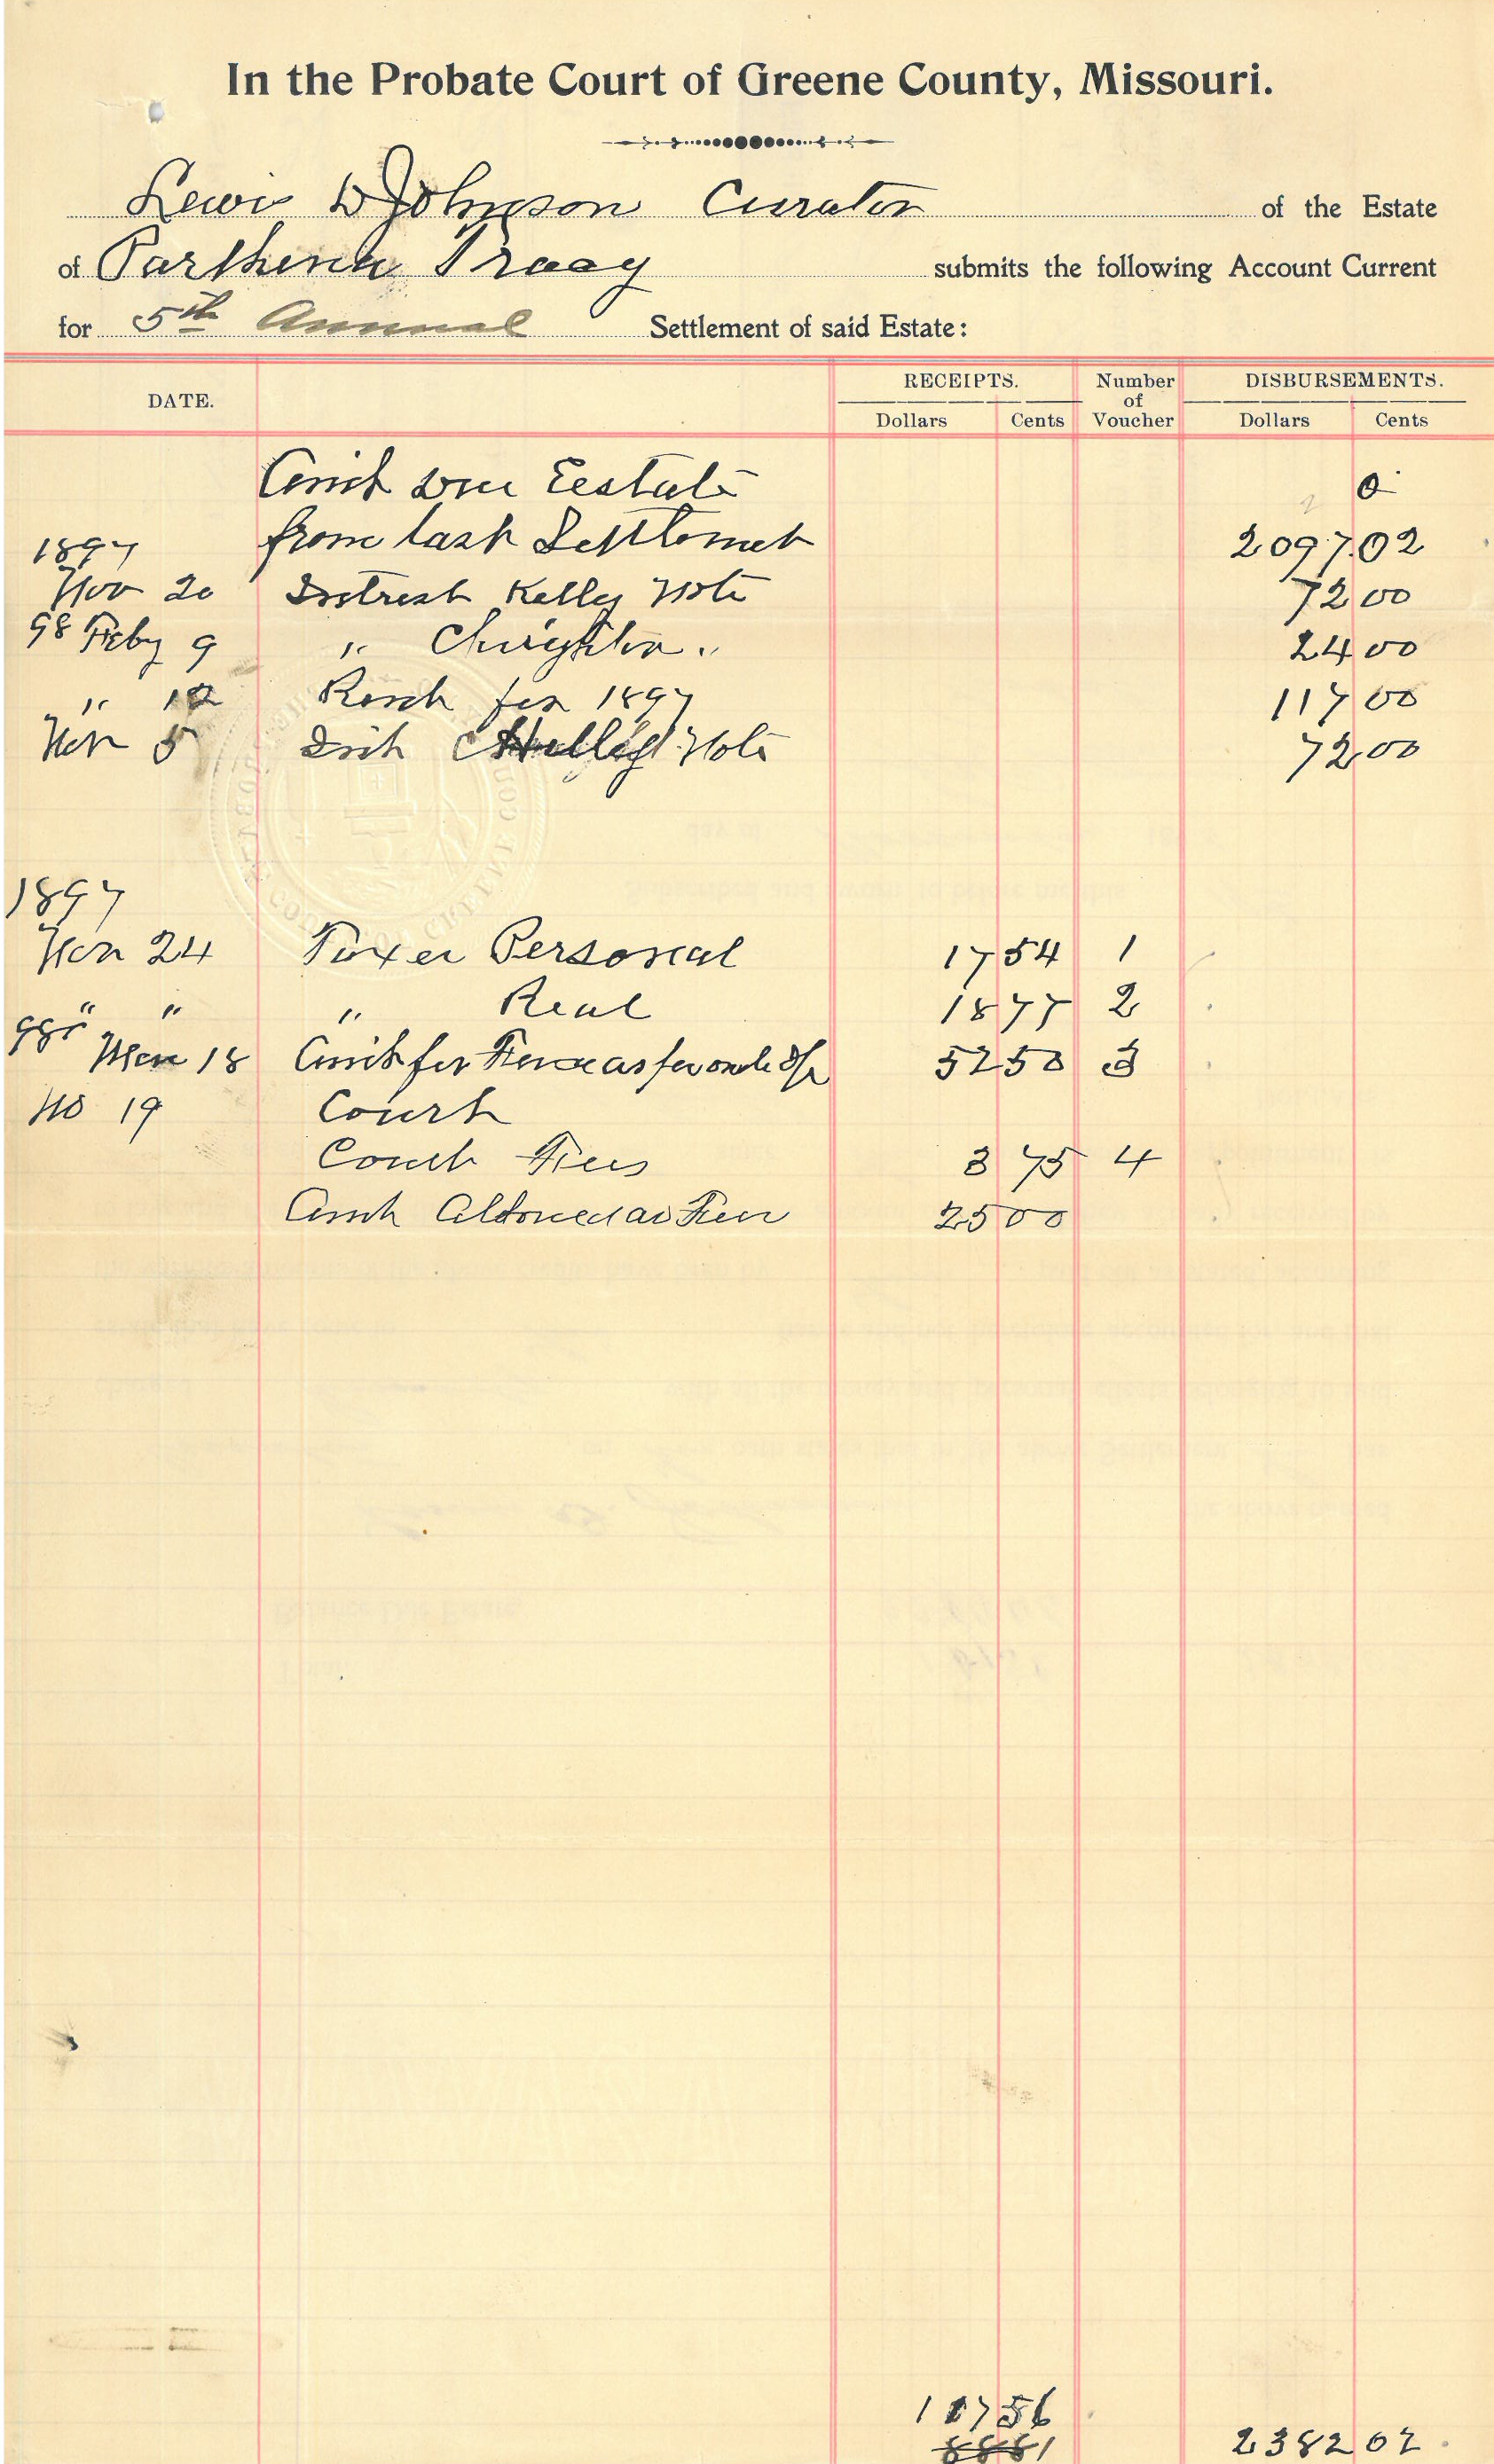 In the Probate Court of Greene County, Missouri.
Lewis D Johnson Curator of the Estate
of Parthena Tracy submits the following Account Current
for 5th Annual Settlement of said Estate:
DATE. RECEIPTS. Number of Voucher DISBURSEMENTS.
Dollars Cents Dollars Cents
Amt due Eestate 0
1897 from last Settlement 2097.02
Nov 20 Intrest Kelley Note 72 00
98 Feby 9 " " 24 00
" 12 for 1897 117 00
Nov 5 Int Note 72 00
1897
Nov 24 Taxes Personal 17 54 1
" " " Real 18 77 2
98 18 Amt for Fence as per order of 52 50 3
No 19 Court
Court Fees 3 75 4
Amt as Fees 25 00
117 56
88 81 2382 02